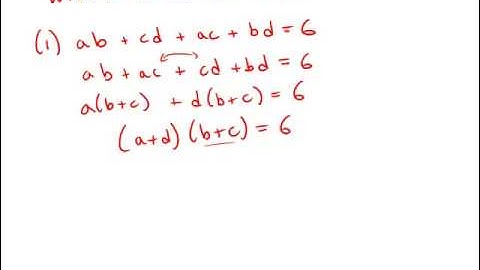 (1) ab + cd + ac + bd = 6
ab + ac + cd + bd = 6
a(b+c) + d(b+c) = 6
(a+d)(b+c) = 6